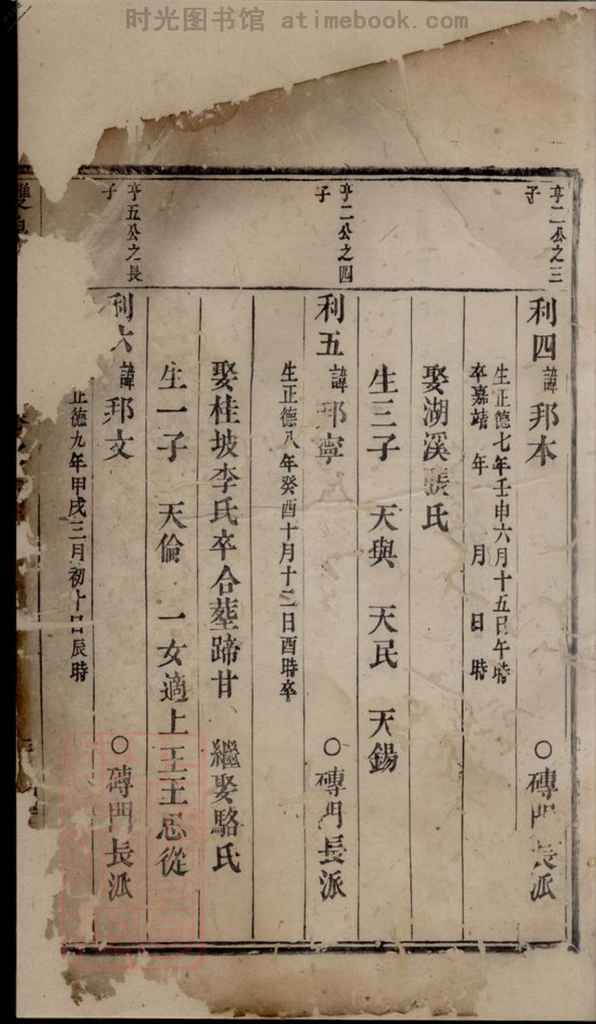 时光图书馆 atimebook.com
亨二公之三
子
利四 諱邦本 ○ 磚門長派
生正德七年壬申六月十五日午時
卒嘉靖 年 月 日 時
娶湖溪張氏
生三子 天與 天民 天錫
亨二公之四
子
利五 諱邦寧 ○ 磚門長派
生正德八年癸酉十月十二日酉時卒
娶桂坡李氏卒合塟蹄甘 繼娶駱氏
生一子 天倫 一女適上王王忠從
亨五公之長
子
利六 諱邦文 ○ 磚門長派
正德九年甲戌三月初十日辰時
雙